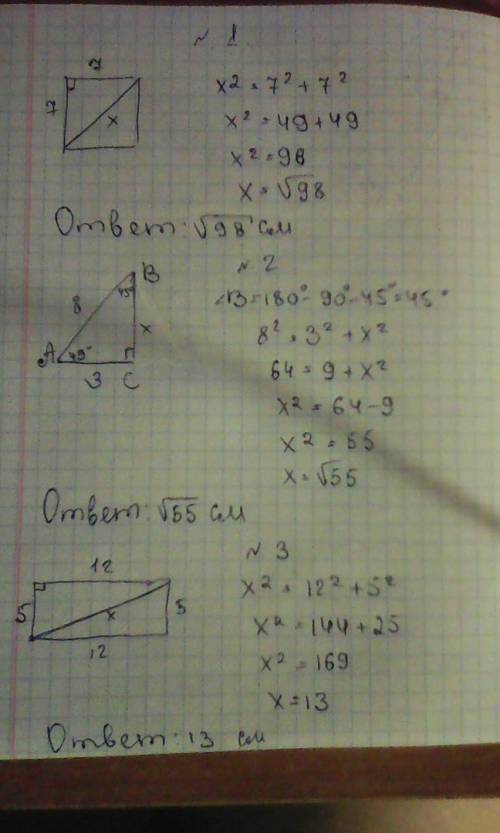 ~ 1
7
7
x
x² = 7² + 7²
x² = 49 + 49
x² = 98
x = √98
Ответ: √98 см
~ 2
B
45°
8
x
A
45°
3
C
∠B = 180° - 90° - 45° = 45°
8² = 3² + x²
64 = 9 + x²
x² = 64 - 9
x² = 55
x = √55
Ответ: √55 см
~ 3
12
5
x
5
12
x² = 12² + 5²
x² = 144 + 25
x² = 169
x = 13
Ответ: 13 см